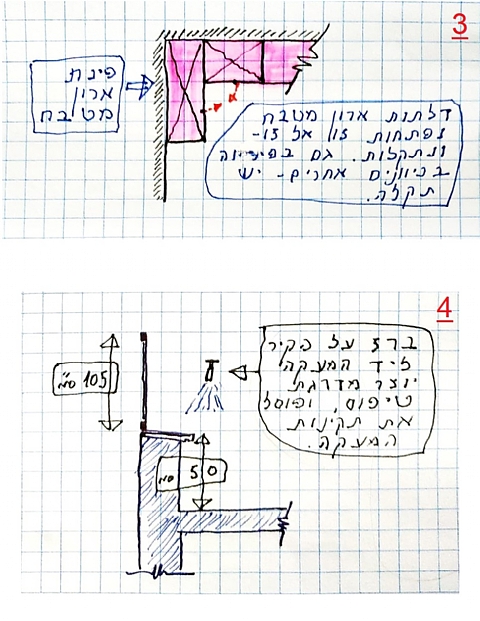 3
פינת
ארון
מטבח
דלתות ארון מטבח
נפתחות זו אל זו -
ונתקלות. גם בפתיחה
בכיוונים אחרים - יש
תקלה.
4
ברז על הקיר
ליד המעקה
יוצר מדרגת
טיפוס, ופוסל
את תקינות
המעקה.
105 ס"מ
50 ס"מ